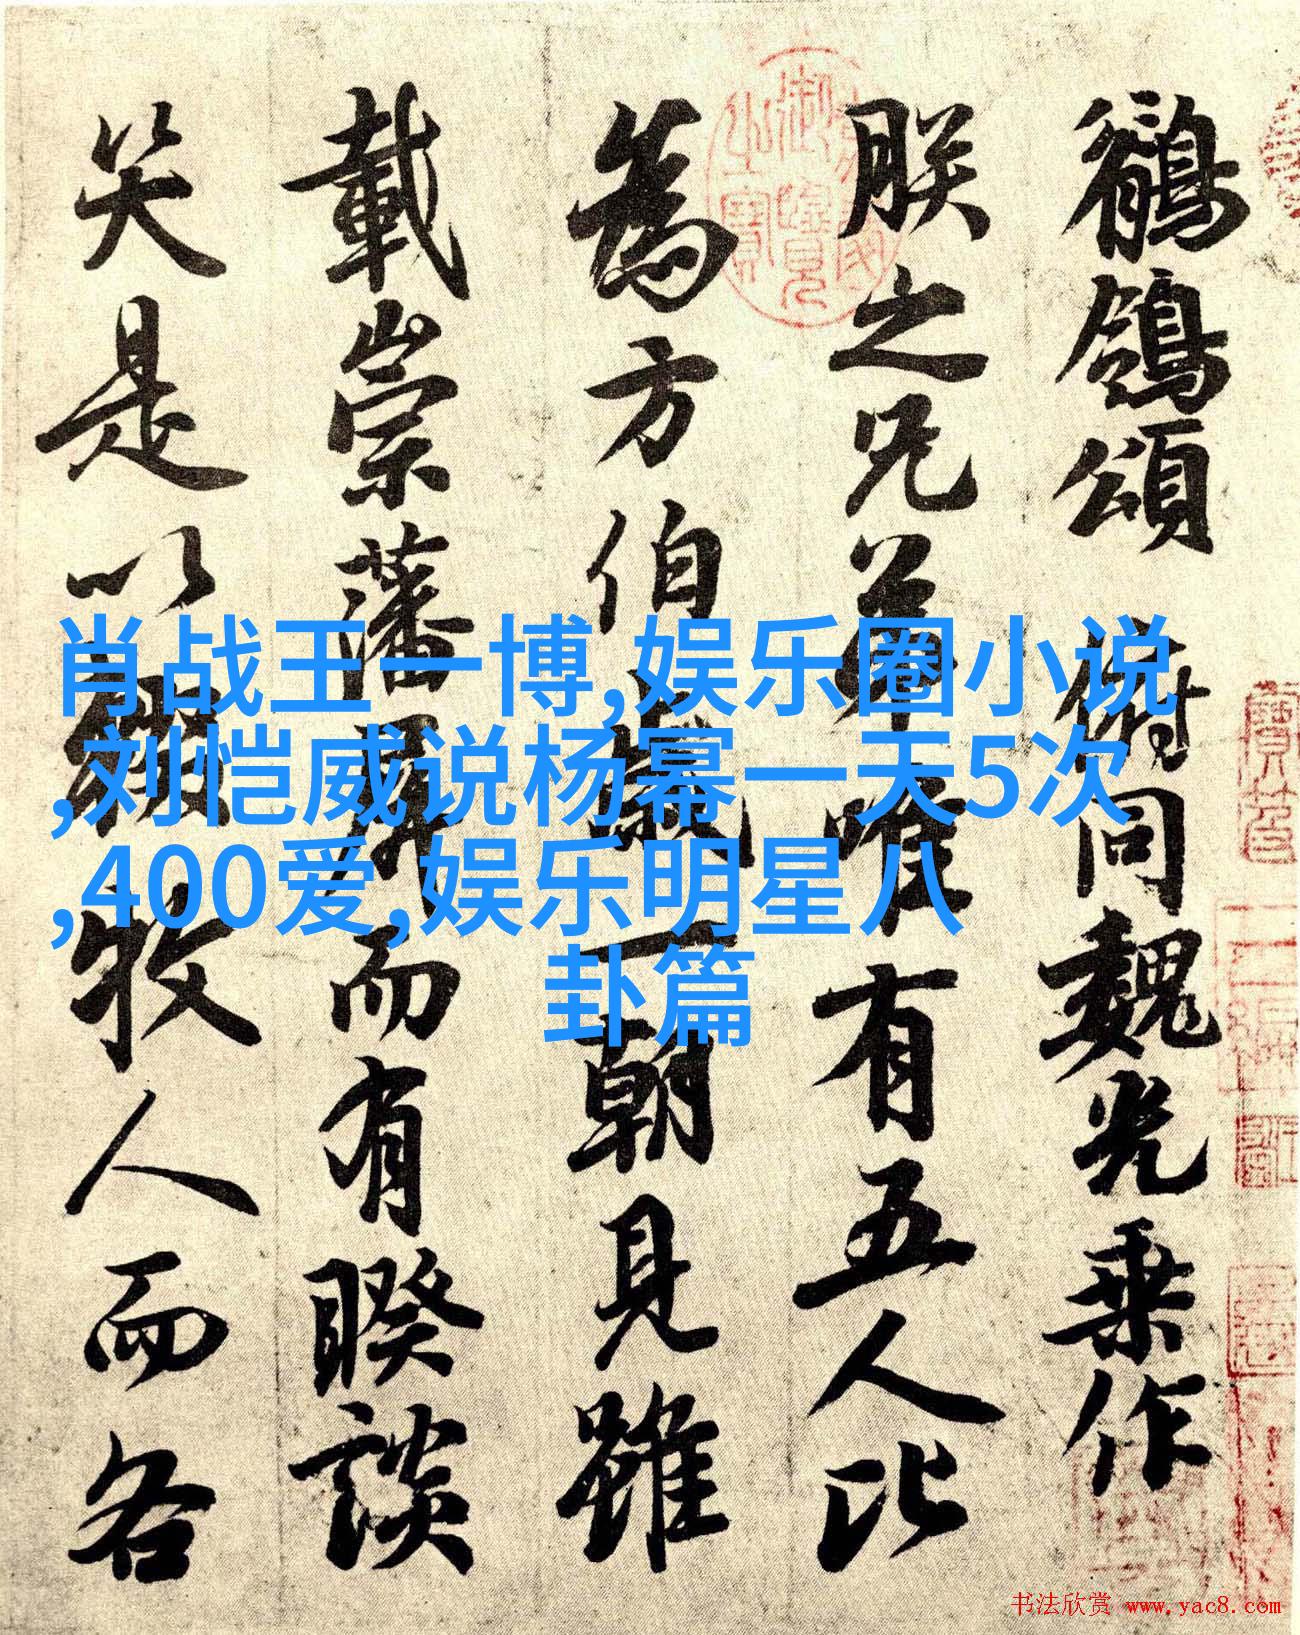 鶺鴒頌 俯同魏光乗作
朕之兄弟唯有五人比
為方伯歲一朝見雖
載崇藩屏而有睽談
笑是以輟牧人而各
肖战王一博,娱乐圈小说
,刘恺威说杨幂一天5次
,400爱,娱乐明星八
卦篇
书法欣赏 www.yac8.com